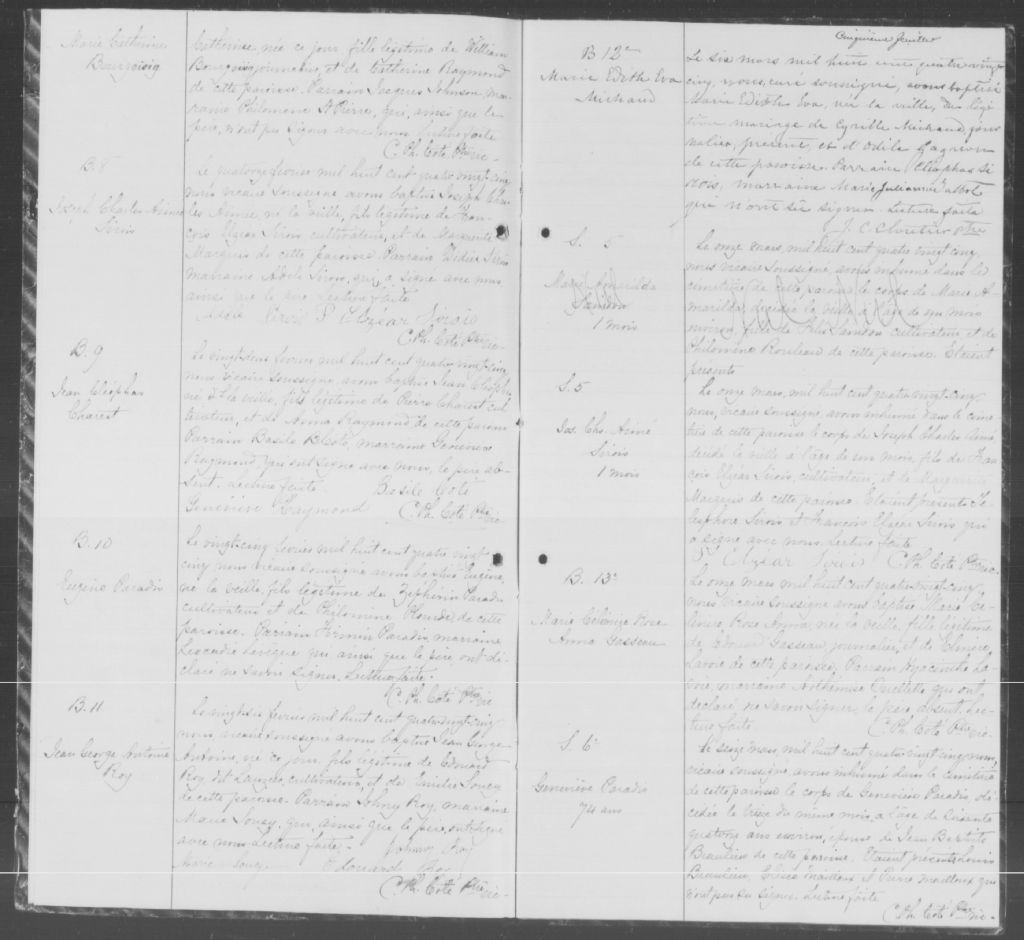 Marie Catherine
Bourgoisig
Catherine, née ce jour, fille légitime de William
Bourgois journalier, et de Catherine Raymond
de cette paroisse. Parrain Jacques Johnson, mar-
raine Philomène St Pierre, qui, ainsi que le
père, n'ont pu signer avec nous. Lecture faite
C. Ph. Coté Ptre vic-
B. 8
Joseph Charles Aimé
Sirois
Le quatorze février mil huit cent quatre vingt cinq
nous vicaire soussigné avons baptisé Joseph Char-
les Aimée, né la veille, fils légitime de Fran-
çois Elzéar Sirois cultivateur, et de Marguerite
Marquis de cette paroisse. Parrain Didier Sirois
marraine Adèle Sirois, qui a signé avec nous
ainsi que le père. Lecture faite
Adèle Sirois F. Elzéar Sirois
C. Ph. Coté Ptre vic-
B. 9
Jean Cléophas
Charest
Le vingt-deux février mil huit cent quatre vingt cinq
nous vicaire soussigné avons baptisé Jean Cléophas
né la veille, fils légitime de Pierre Charest cul-
tivateur, et de Anna Raymond de cette paroisse
Parrain Basile Coté, marraine Geneviève
Raymond, qui ont signé avec nous, le père ab-
sent. Lecture faite. Basile Coté
Geneviève Raymond C. Ph. Coté Ptre vic-
B. 10
Eugène Paradis
Le vingt-cinq février mil huit cent quatre vingt
cinq nous vicaire soussigné avons baptisé Eugène,
né la veille, fils légitime de Zéphirin Paradis
cultivateur et de Philomène Plourde, de cette
paroisse. Parrain Firmin Paradis, marraine
Léocadie Levesque qui ainsi que le père, ont dé-
claré ne savoir signer. Lecture faite.
C. Ph. Coté Ptre vic
B. 11
Jean George Antoine
Roy
Le vingt-six février mil huit cent quatre vingt cinq
nous, vicaire soussigné avons baptisé Jean George
Antoine, né ce jour, fils légitime de Edouard
Roy dit Lauzier, cultivateur, et de Emilie Soucy
de cette paroisse. Parrain Johnny Roy, marraine
Marie Soucy, qui, ainsi que le père, ont signé
avec nous. Lecture faite. Johnny Roy
Marie Soucy Edouard Roy
C. Ph. Coté Ptre vic-
Cinquième feuillet
B 12e
Marie Edith Eva
Michaud
Le six mars mil huit cent quatre vingt
cinq, nous, curé soussigné, avons baptisé
Marie Edith Eva, née la veille, du légi-
time mariage de Cyrille Michaud, jour-
nalier, présent, et d'Odile Gagnon
de cette paroisse. Parrain, Cléophas Si-
rois, marraine Marie Julienne Talbot
qui n'ont su signer. Lecture faite
J. C. Cloutier Ptre
S. 5
Marie Amarilda
Landon
1 mois
Le onze mars, mil huit cent quatre vingt cinq,
nous vicaire soussigné, avons inhumé dans le
cimetière de cette paroisse le corps de Marie A-
marilda, décédée la veille à l'âge de un mois
environ, fille de Félix cultivateur et de
Philomène Rouleau de cette paroisse. Etaient
présents
S. 5
Jos. Chs. Aimé
Sirois
1 mois
Le onze mars, mil huit cent quatre vingt cinq
nous, vicaire soussigné, avons inhumé dans le cime-
tière de cette paroisse le corps de Joseph Charles Aimé,
décédé la veille à l'âge de un mois, fils de Fran-
çois Elzéar Sirois, cultivateur, et de Marguerite
Marquis de cette paroisse. Etaient présents Té-
lesphore Sirois et François Elzéar Sirois qui
a signé avec nous. Lecture faite
F. Elzéar Sirois C. Ph. Coté Ptre vic-
B. 13e
Marie Célanire Rose
Anna Gasseau
Le onze mars mil huit cent quatre vingt cinq
nous vicaire soussigné avons baptisé Marie Cé-
lanire Rose Anna, née la veille, fille légitime
de Edouard Gasseau, journalier, et de Elmire
Lavoie de cette paroisse. Parrain Hyacinthe La-
voie, marraine Arthémise Ouellette qui ont
déclaré ne savoir signer, le père absent. Lec-
ture faite. C. Ph. Coté Ptre vic-
S. 6e
Geneviève Paradis
74 ans
Le seize mars, mil huit cent quatre vingt cinq, nous,
vicaire soussigné, avons inhumé dans le cimetière
de cette paroisse le corps de Geneviève Paradis, dé-
cédée le treize du même mois, à l'âge de soixante
quatorze ans environ, épouse de Jean Baptiste
Beaulieu de cette paroisse. Etaient présents Louis
Beaulieu, Elisée Mailloux et Pierre Mailloux qui
n'ont pas su signer. Lecture faite
C. Ph. Coté Ptre vic-